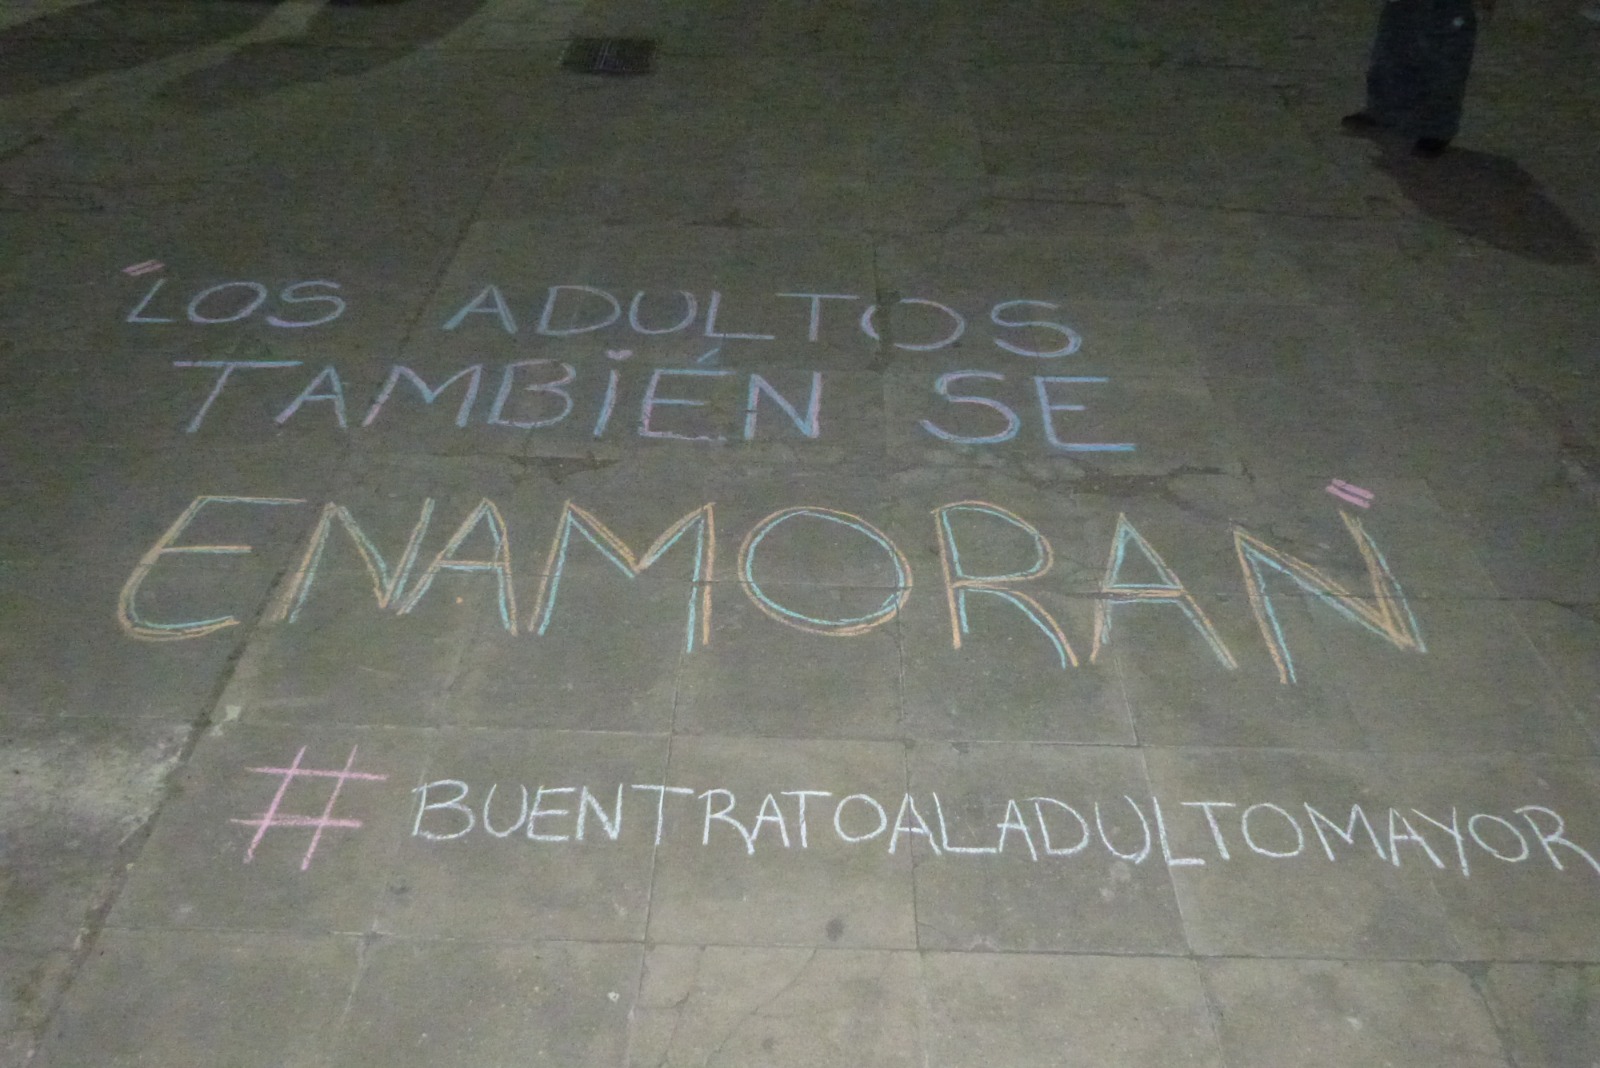 "LOS ADULTOS
TAMBIÉN SE
ENAMORAN"
#BUENTRATOALADULTOMAYOR